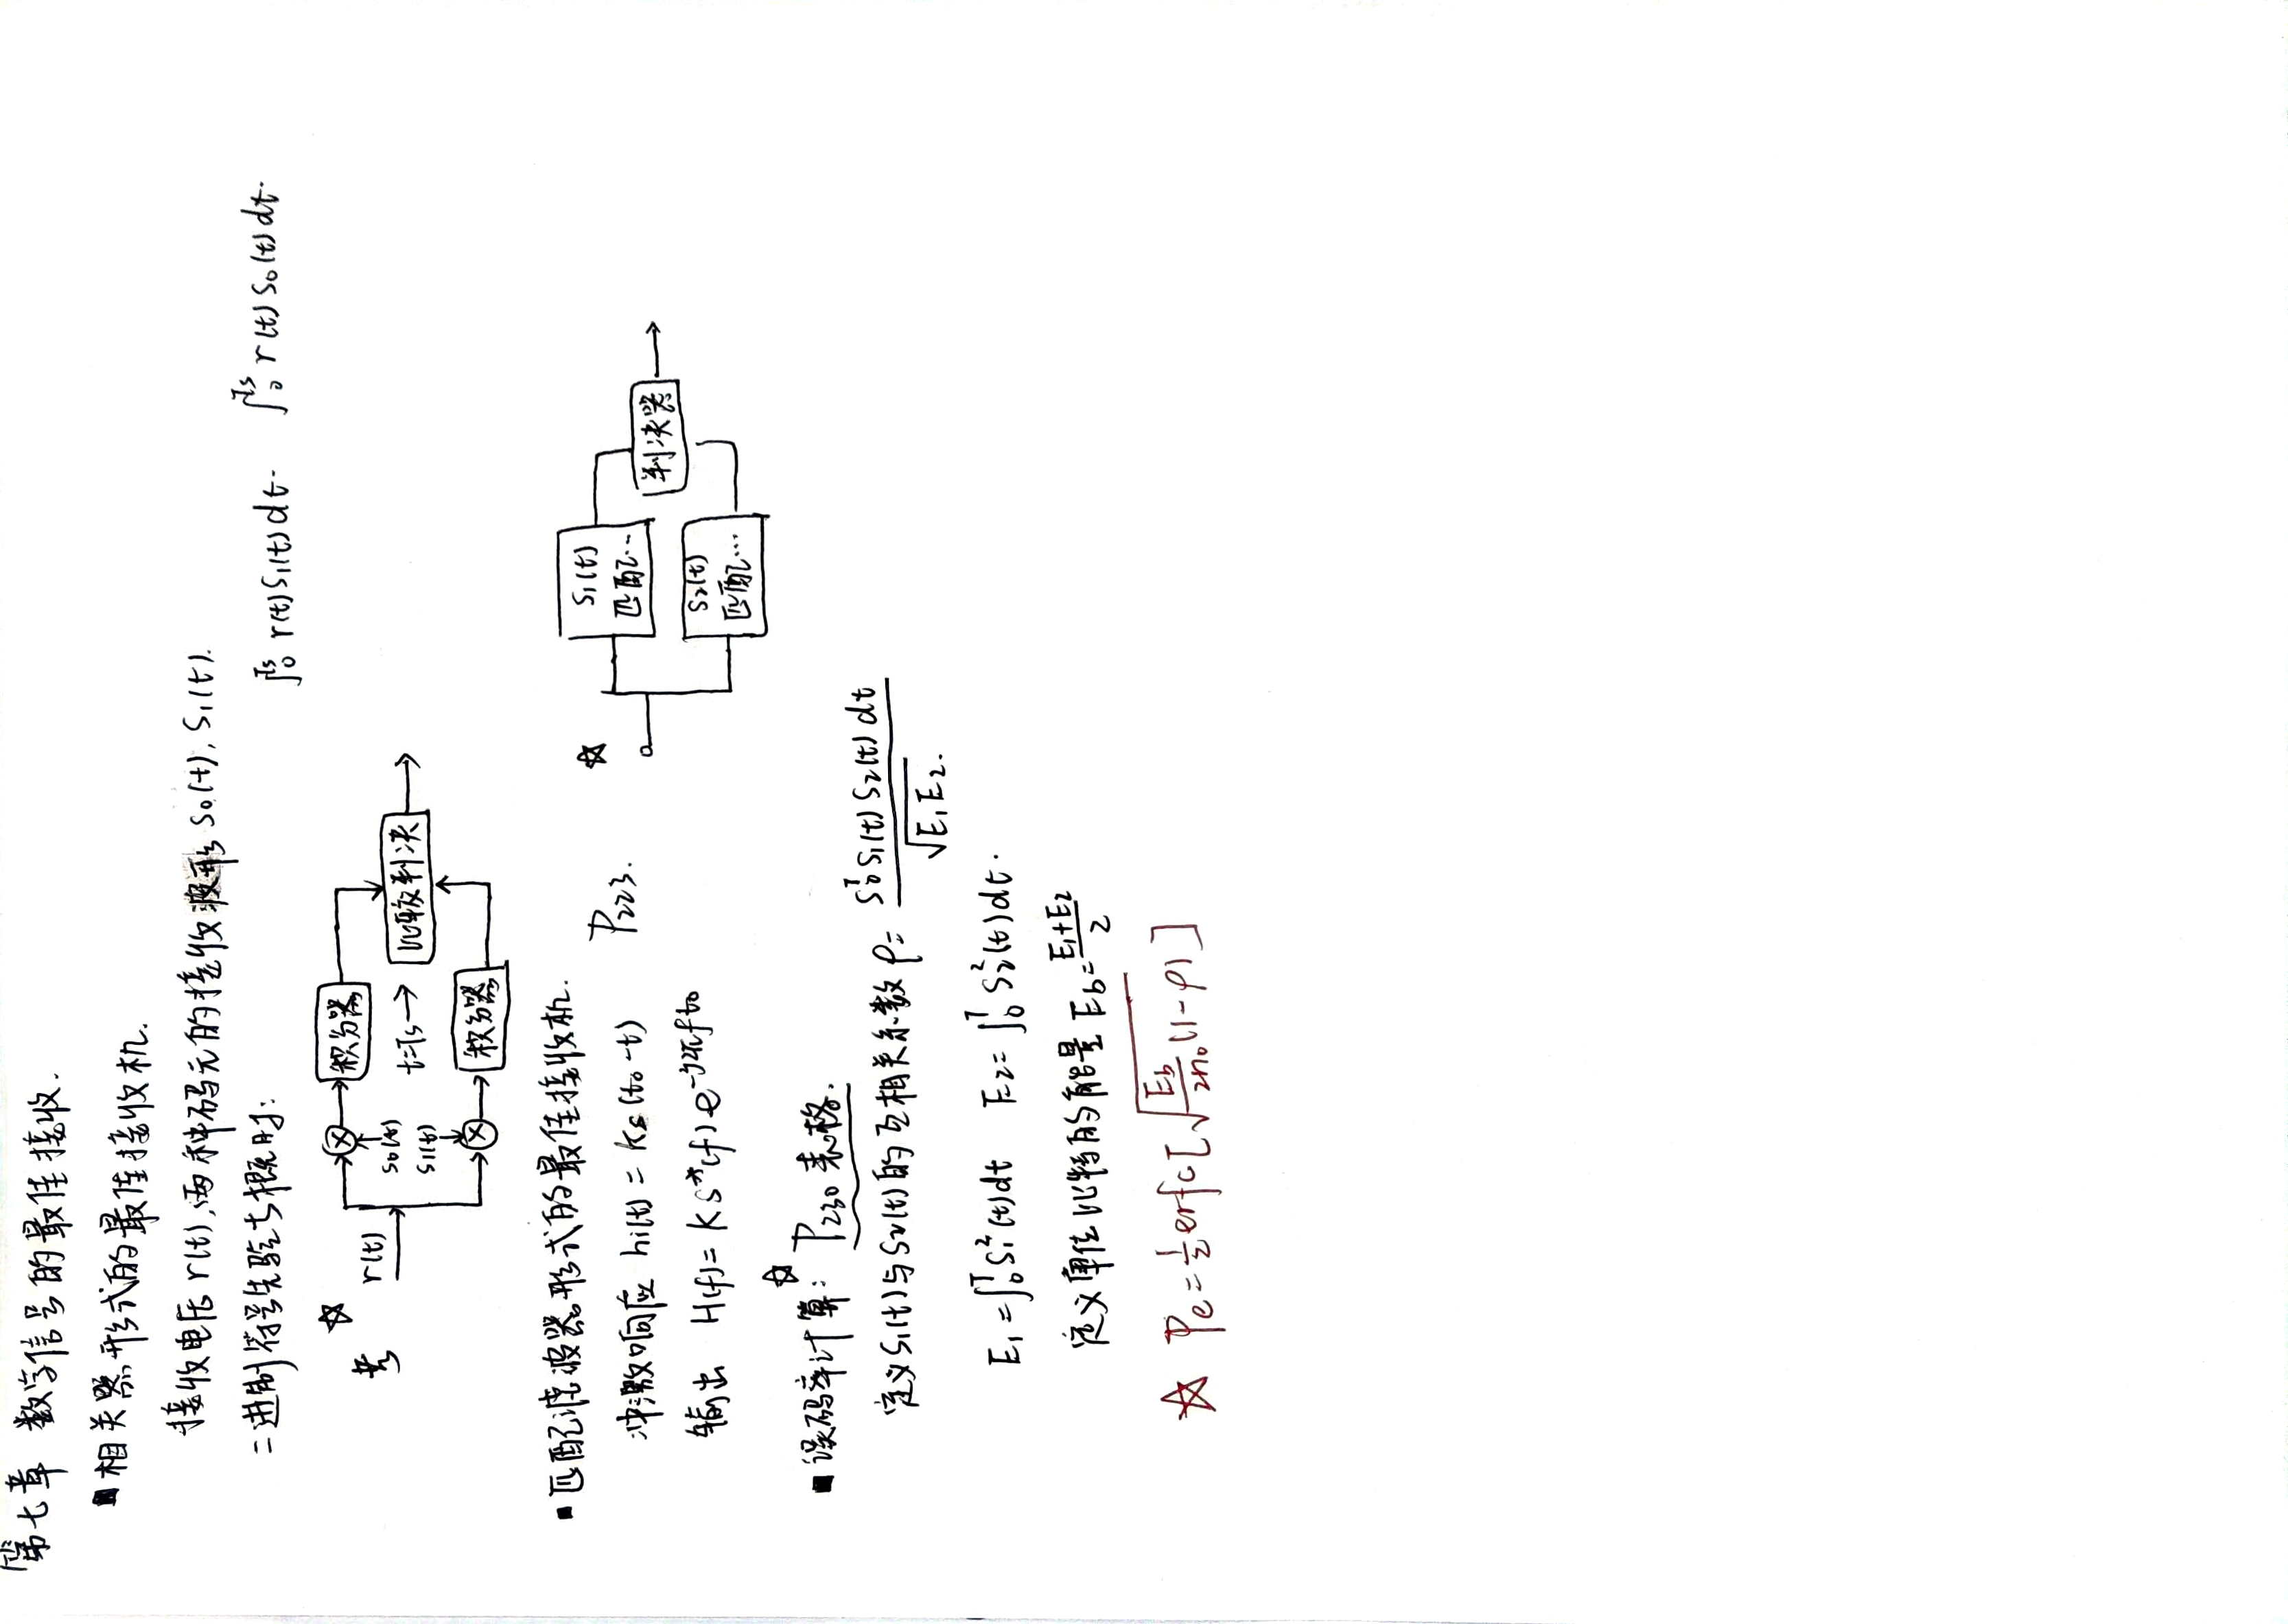 第七章 数字信号的最佳接收.
■相关器形式的最佳接收机.
接收电压 r(t),两种码元的接收波形 S₀(t), S₁(t).
二进制符号先验等概时:
∫₀^Ts r(t)S₁(t)dt. ∫₀^Ts r(t)S₀(t)dt.
考 ☆
r(t)
⊗
积分器
S₀(t)
S₁(t)
t=Ts→
比较判决
⊗
积分器
■匹配滤波器形式的最佳接收机.
冲激响应 hi(t) = Ks(t₀-t) P₂₂₃.
输出 H(f)= KS*(f)e^-j2πft₀
☆
S₁(t)
匹配…
判决器
S₂(t)
匹配…
■误码率计算: ☆ P₂₃₀ 表格.
定义S₁(t)与S₂(t)的互相关系数 ρ= ∫₀^T S₁(t) S₂(t) dt / √E₁E₂.
E₁ =∫₀^T S₁²(t)dt E₂= ∫₀^T S₂²(t)dt.
定义单位比特的能量 Eb= (E₁+E₂)/2
☆ Pe = ½ erfc[√(Eb/2n₀ (1-ρ))]